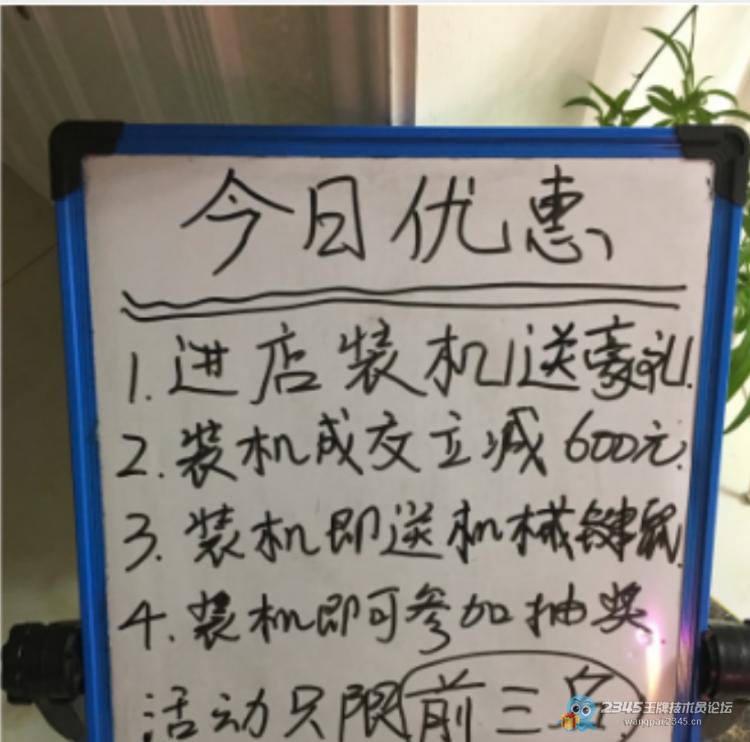 今日优惠
1.进店装机送豪礼.
2.装机成交立减600元.
3.装机即送机械键鼠
4.装机即可参加抽奖
活动只限前三名
2345王牌技术员论坛
wangpai2345.cn